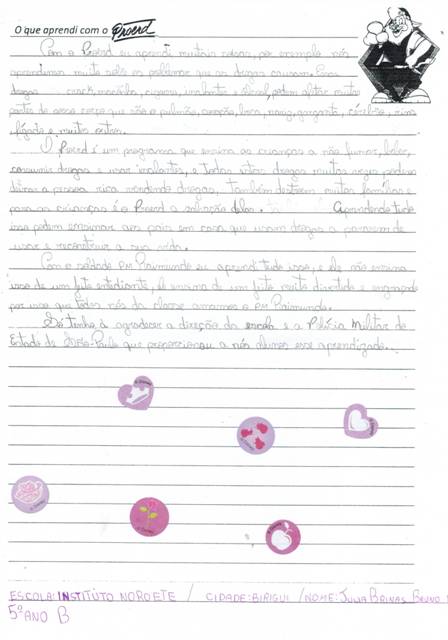 O que aprendi com o Proerd
Com o Proerd eu aprendi muitas coisas, por exemplo nós
aprendemos muito sobre os problemas que as drogas causam. Essas
drogas crack, maconha, cigarro, inalantes e álcool, podem afetar muitas
partes do nosso corpo que são o pulmão, coração, boca, nariz, garganta, cérebro, rins
fígado e muitos outros.
O Proerd é um programa que ensina as crianças a não fumar, beber,
consumir drogas e usar inalantes, e todas estas drogas muitas vezes podem
a pessoa rica vendendo drogas, também destroem muitas famílias e
para as crianças é o Proerd a salvação delas. Aprendendo tudo
isso podem ensinar aos pais em casa que usam drogas a pararem de
usar e reconstruir a sua vida.
Com o soldado PM Raimundo eu aprendi tudo isso, e ele não ensina
isso de um jeito entediante, ele ensina de um jeito muito divertido e engraçado
por isso que todos nós da classe amamos o PM Raimundo.
Só tenho à agradecer a direção da escola e a Polícia Militar do
Estado de São Paulo que proporcionou a nós alunos esse aprendizado.
ESCOLA: INSTITUTO NOROETE / CIDADE: BIRIGUI / NOME: JULIA BRINAS BRUNO
5º ANO B